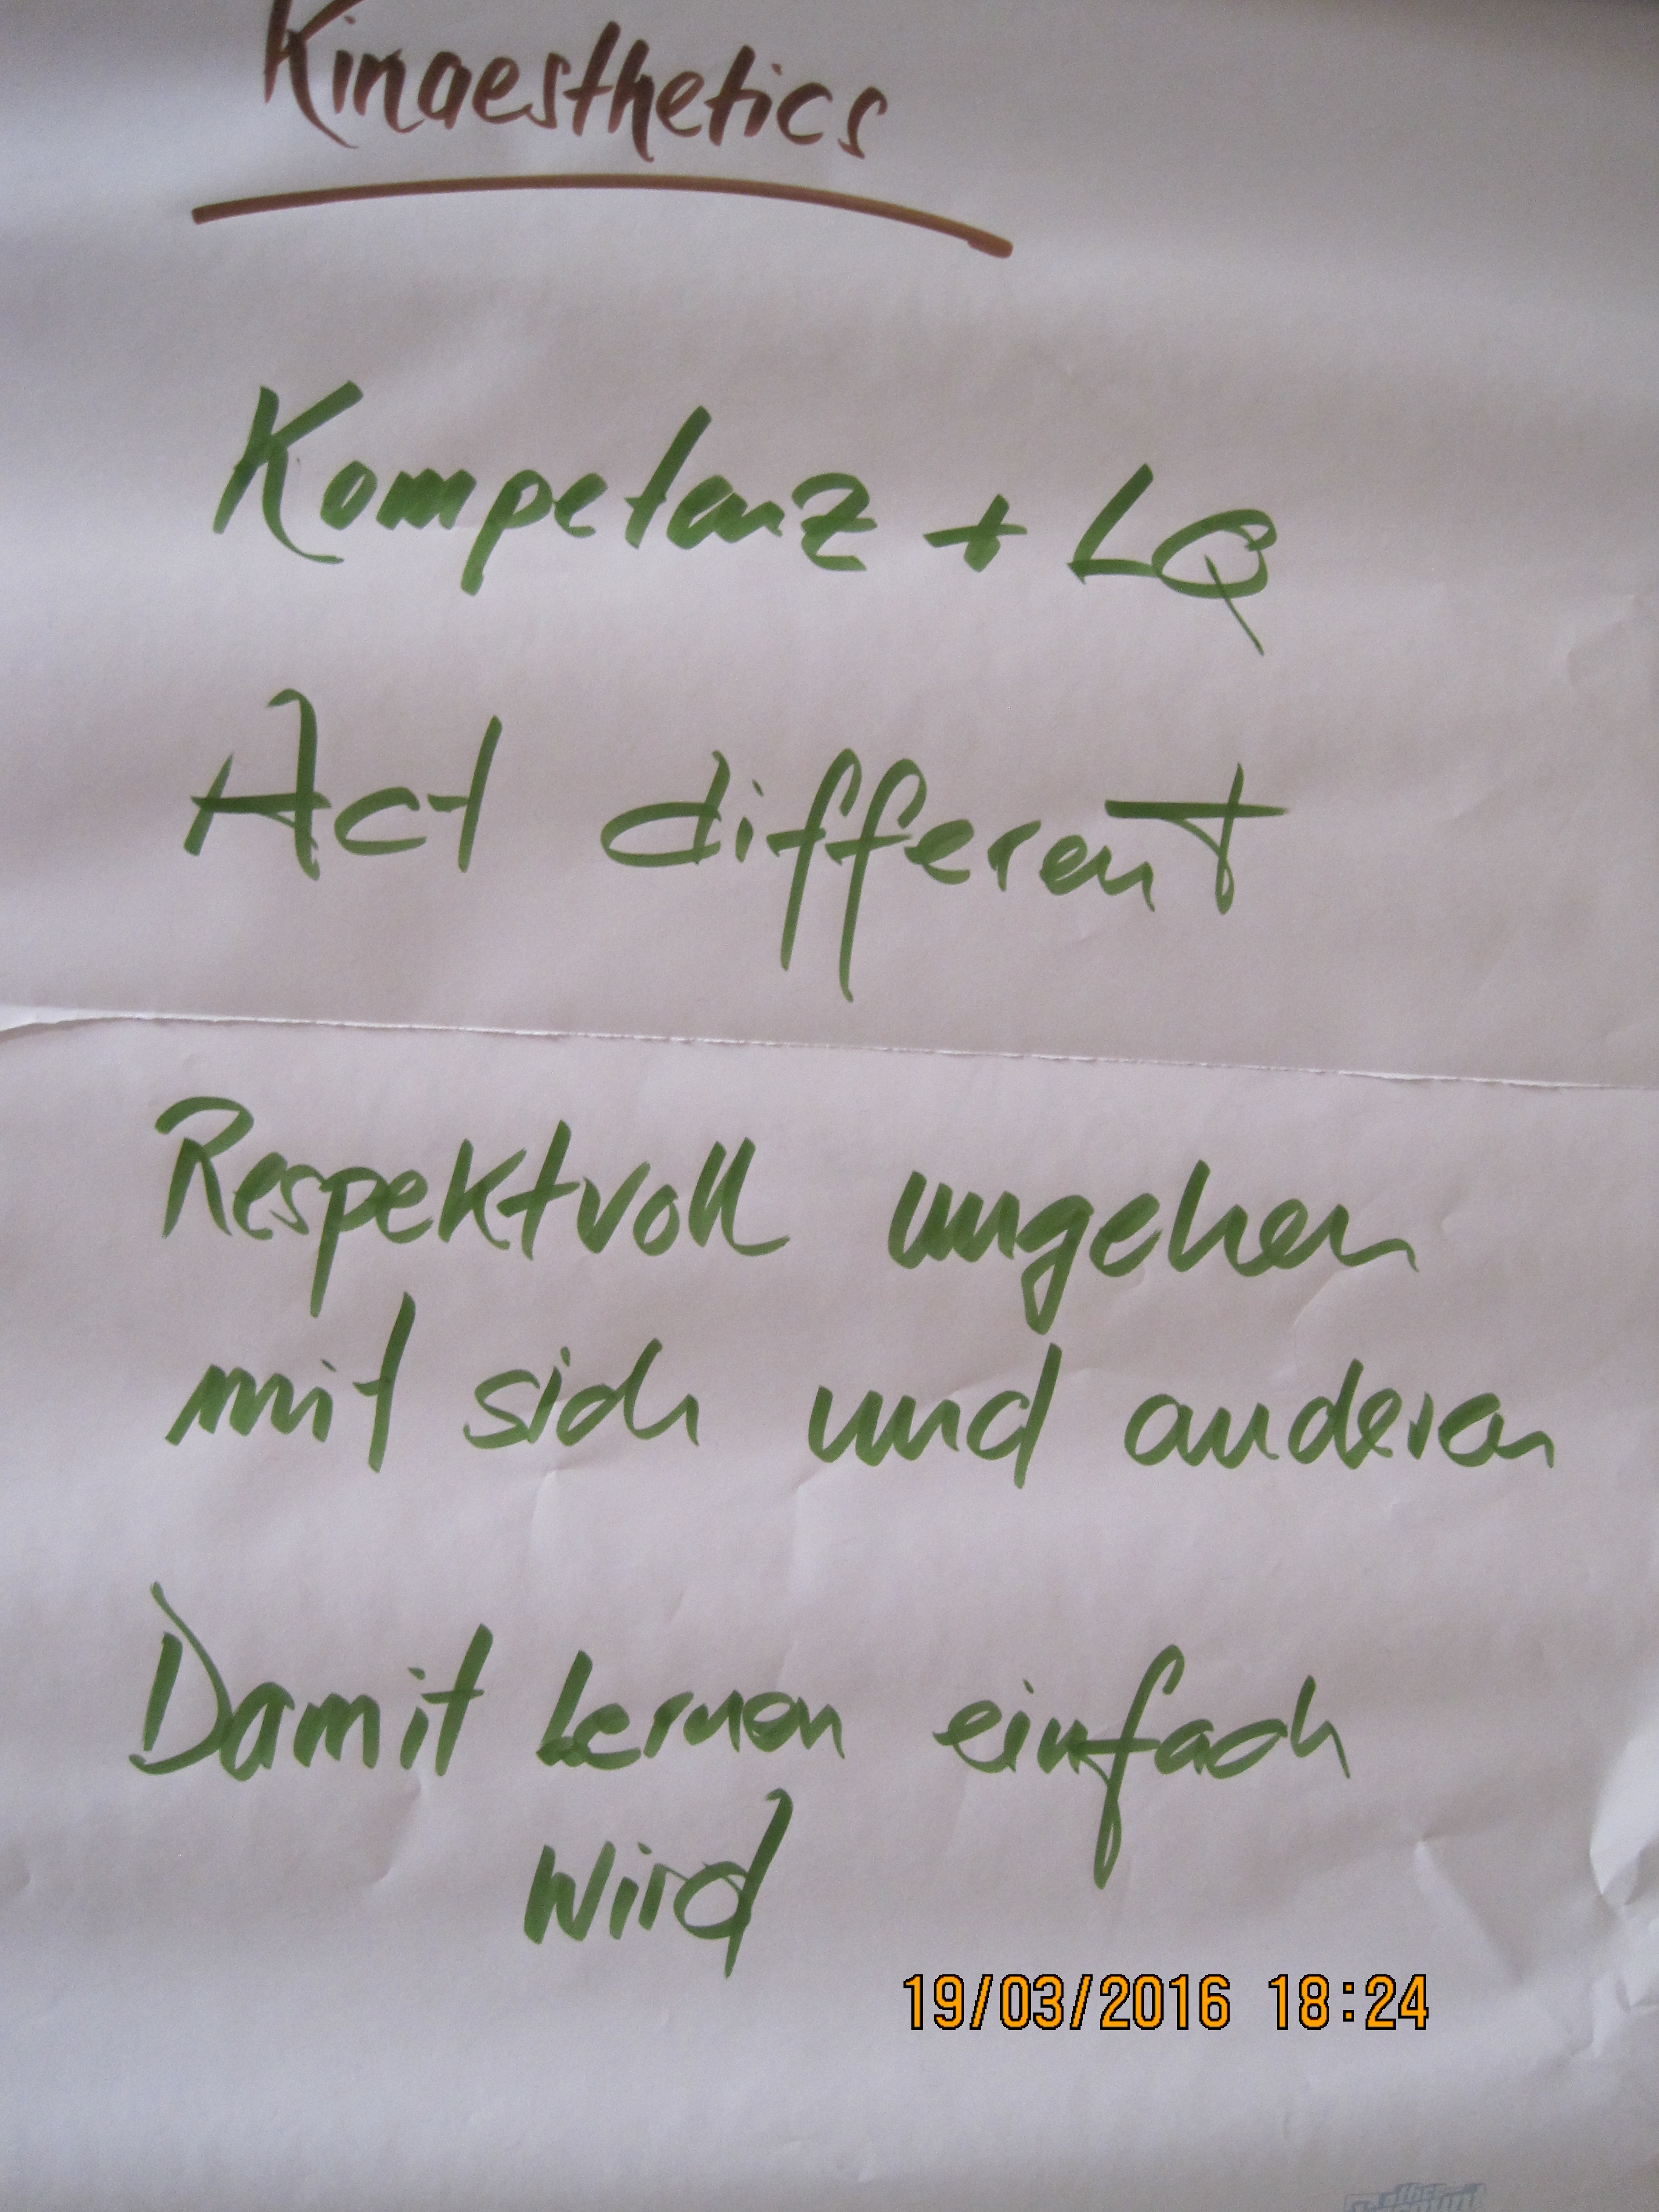 Kinaesthetics
Kompetenz + LQ
Act different
Respektvoll umgehen
mit sich und anderen
Damit Lernen einfach
wird
19/03/2016 18:24